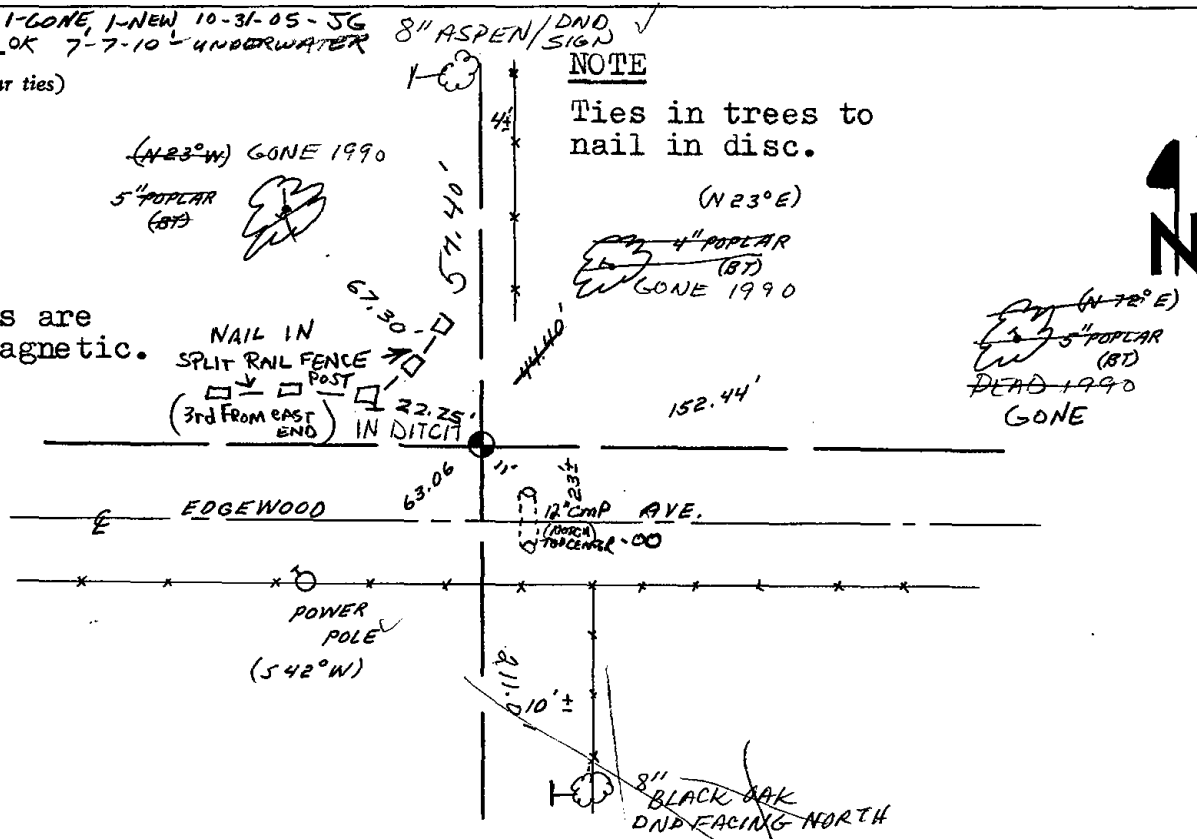 1-GONE, 1-NEW 10-31-05 - JG
OK 7-7-10 - UNDERWATER
8" ASPEN/DND SIGN ✓
ar ties)
NOTE
Ties in trees to
nail in disc.
4'±
(N23°W) GONE 1990
5" POPLAR
(BT)
57.40'
(N23°E)
4" POPLAR
(BT)
GONE 1990
N
(N72°E)
5" POPLAR
(BT)
DEAD 1990
GONE
s are
agnetic.
67.30
NAIL IN
SPLIT RAIL FENCE
POST
(3rd FROM EAST
END)
22.25'
IN DITCH
44.40'
152.44'
63.06
11'
23'±
EDGEWOOD AVE.
12" CMP
(NOTCH)
TOP CENTER - 00
POWER
POLE ✓
(S42°W)
211.0
10'±
8"
BLACK OAK
DND FACING NORTH